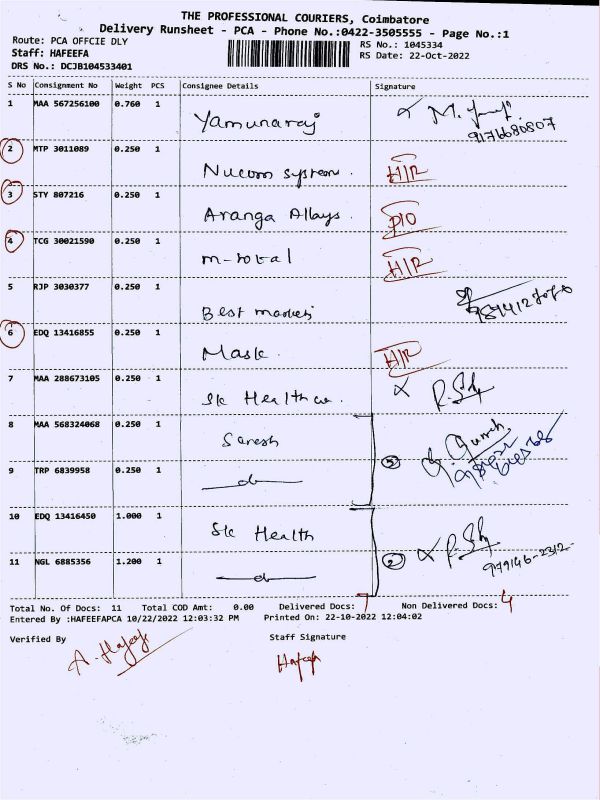 THE PROFESSIONAL COURIERS, Coimbatore
Delivery Runsheet - PCA - Phone No.:0422-3505555 - Page No.:1
Route: PCA OFFCIE DLY
RS No.: 1045334
Staff: HAFEEFA
RS Date: 22-Oct-2022
DRS No.: DCJB104533401
S No Consignment No Weight PCS Consignee Details Signature
1 MAA 567256100 0.760 1
Yamunaraj
2 MTP 3011089 0.250 1
Nucom system. H/R
3 STY 807216 0.250 1
Aranga Alloys.
4 TCG 30021590 0.250 1
H/R
5 RJP 3030377 0.250 1
Best
6 EDQ 13416855 0.250 1
Mask. H/R
7 MAA 288673105 0.250 1
Sk Health
8 MAA 568324068 0.250 1
Suresh
9 TRP 6839958 0.250 1
10 EDQ 13416450 1.000 1
Sk Health
11 NGL 6885356 1.200 1
2
Total No. Of Docs: 11 Total COD Amt: 0.00 Delivered Docs: 7 Non Delivered Docs: 4
Entered By :HAFEEFAPCA 10/22/2022 12:03:32 PM Printed On: 22-10-2022 12:04:02
Verified By Staff Signature
A. Hafeefa Hafeefa